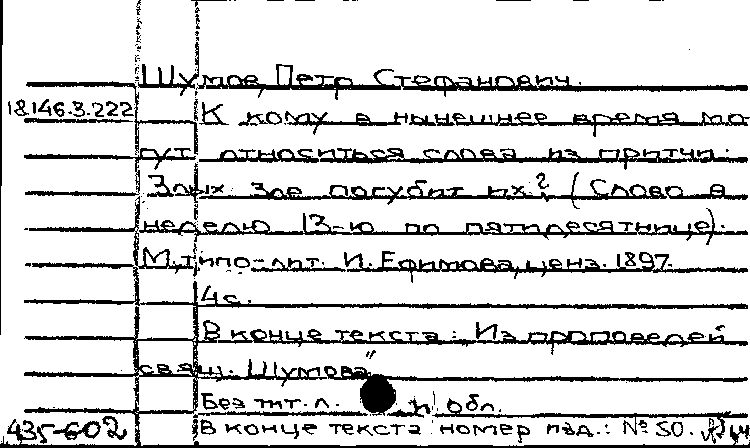 Шумов, Петр Стефанович.
18.146.3.222 К кому в нынешнее время мо
гут относиться слова из притчи:
Злых зле погубит их? (Слово в
неделю 13-ю по пятидесятнице).
М., типо-лит. И. Ефимова, ценз. 1897.
4 с.
В конце текста: „Из проповедей
свящ. Шумова"
Без тит. л. и обл.
435-602 В конце текста номер изд.: № 50.